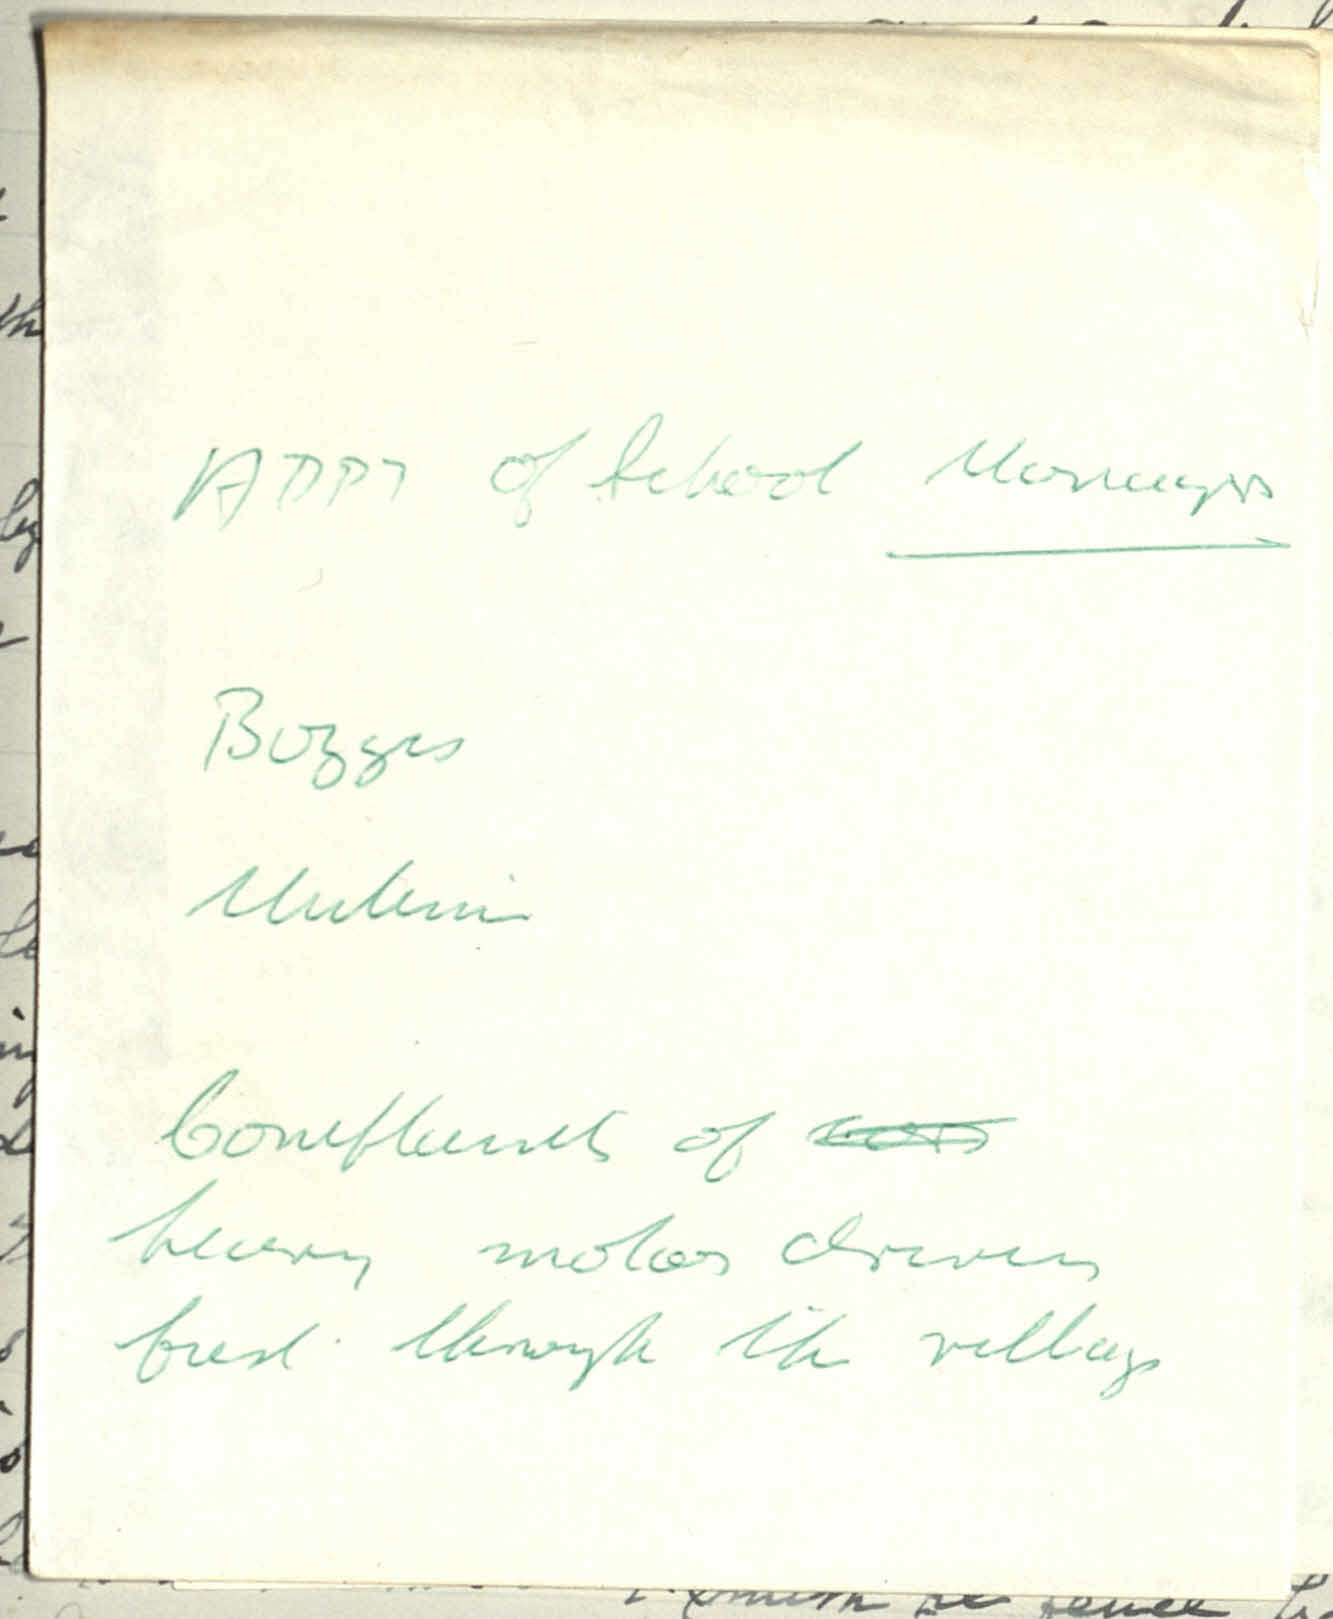 APPT of School Managers
Boggis
Complaints of cars
heavy motors driven
fast through the village